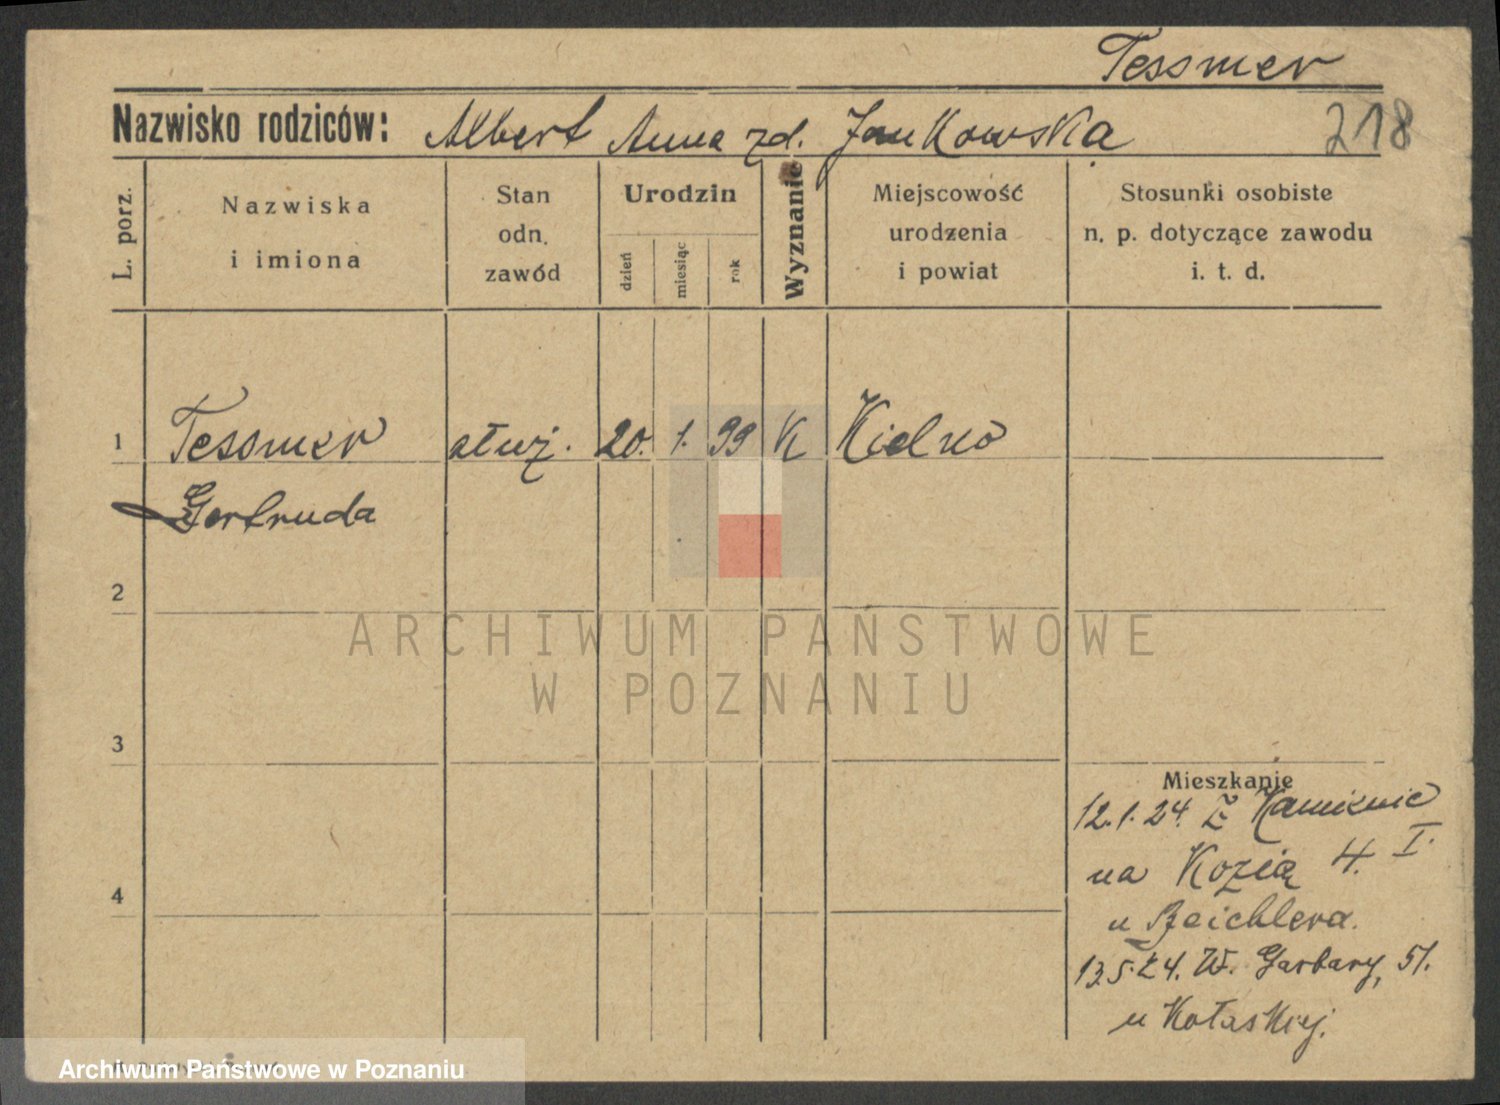 Tessmer
Nazwisko rodziców: Albert Anna zd. Jankowska
218
L. porz.
Nazwiska
i imiona
Stan
odn.
zawód
Urodzin
dzień
miesiąc
rok
Wyznanie
Miejscowość
urodzenia
i powiat
Stosunki osobiste
n. p. dotyczące zawodu
i. t. d.
1 Tessmer służ. 20. 1. 99 K Kielno
Gertruda
2
ARCHIWUM PAŃSTWOWE
W POZNANIU
3
Mieszkanie
12.1.24. Z Kamienic
na Kozią 4. I.
4
u
13.5.24. W. Garbary, 51.
u Kołaskiej.
Archiwum Państwowe w Poznaniu